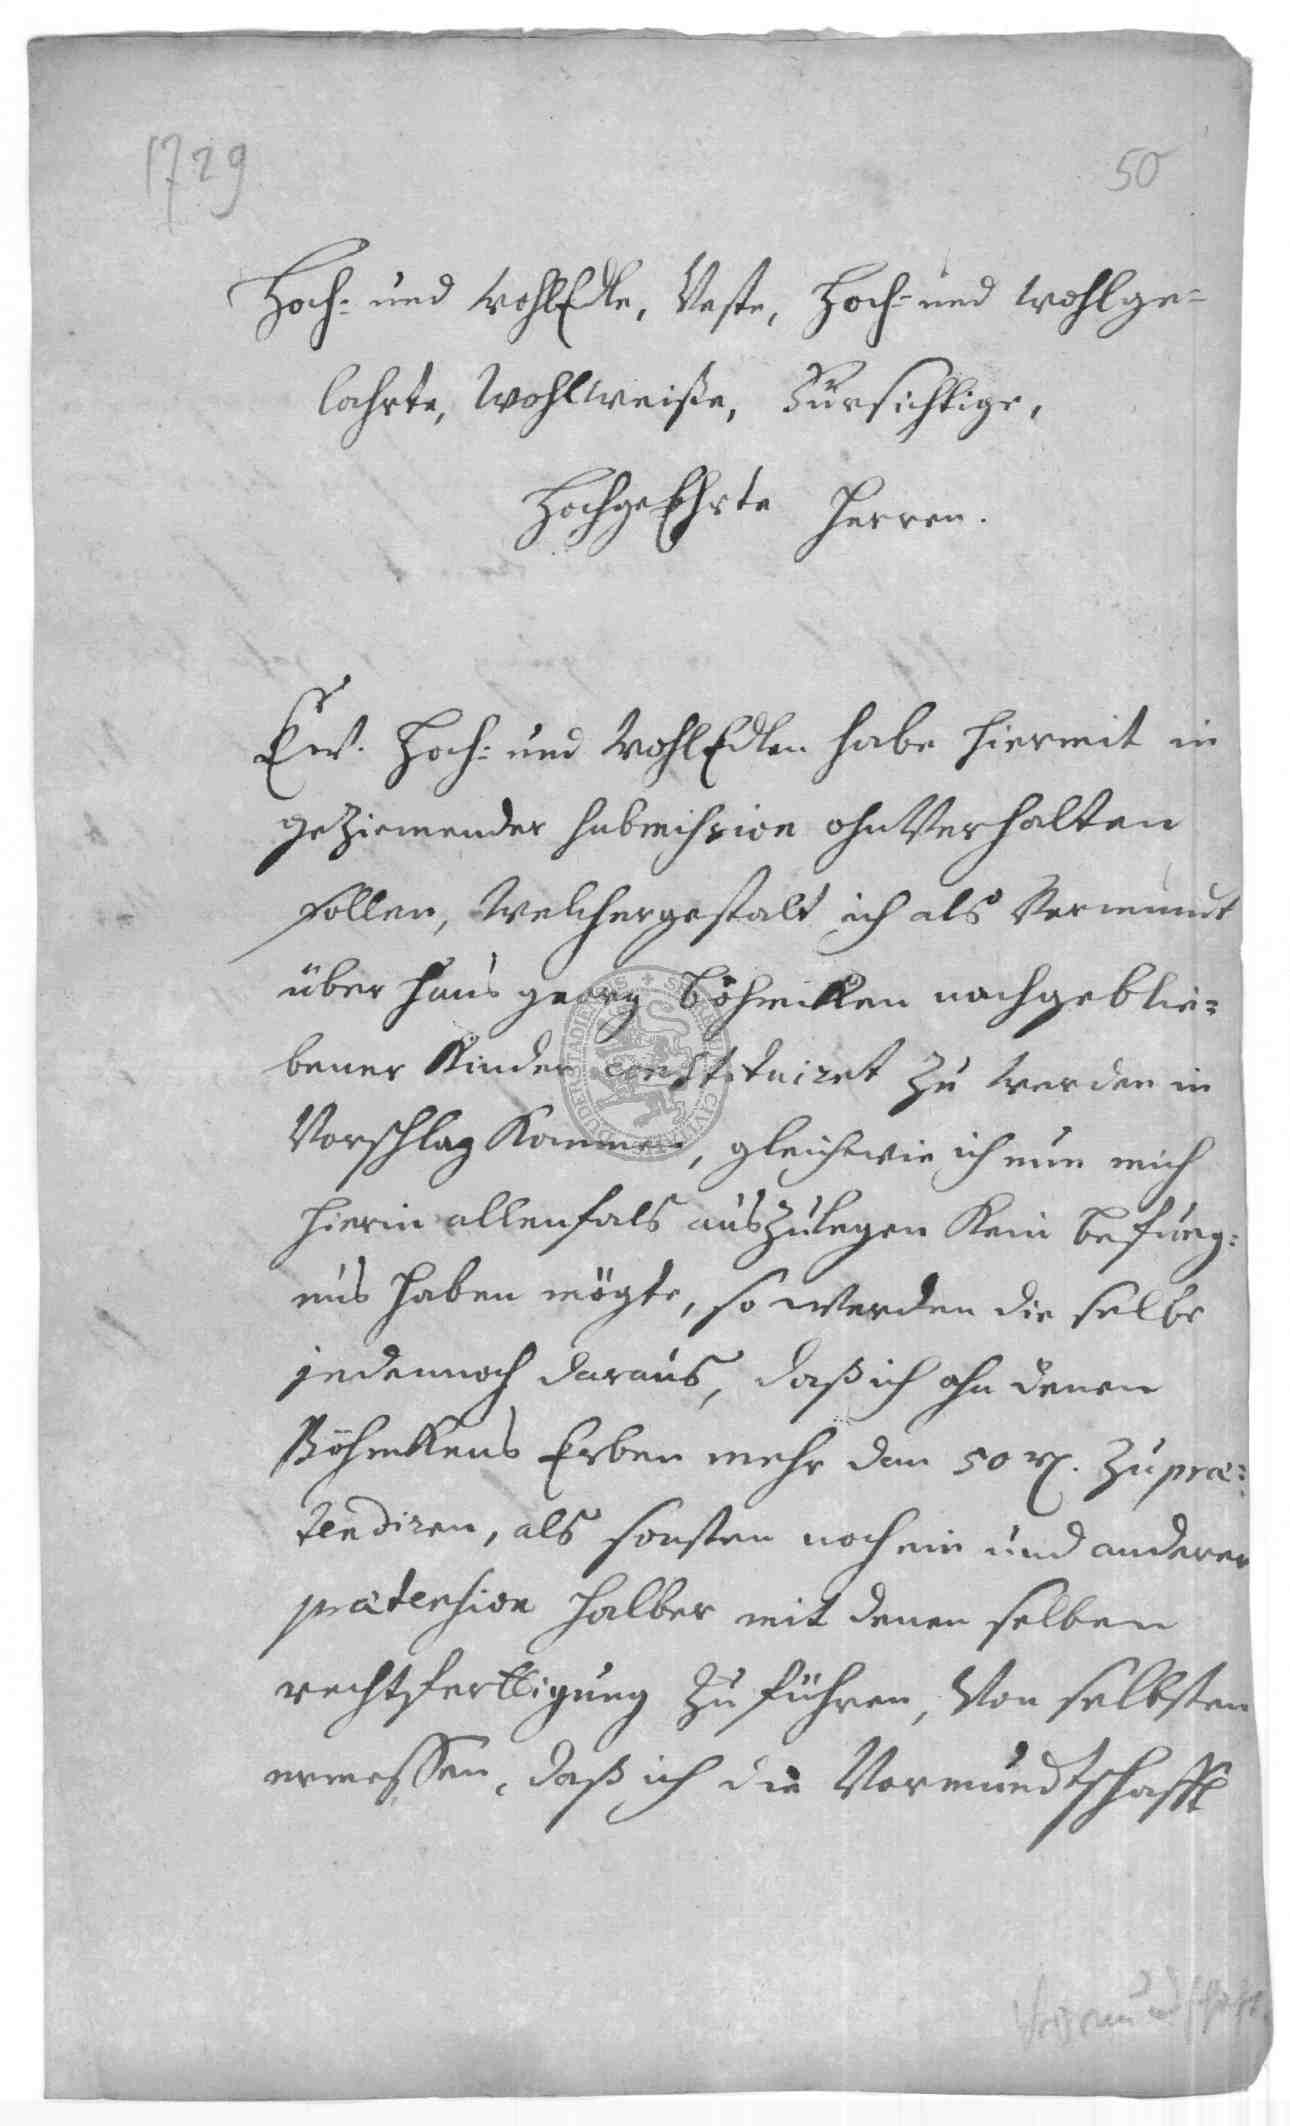 1729
50
Hoch- und WohlEdle, Veste, Hoch- und wohlge-
lahrte, Wohlweiße, Fürsichtige,
HochgeEhrte Herren.
Ew. Hoch- und WohlEdlen habe hiermit in
geziemender submission ohnVerhalten
sollen, Welchergestalt ich als Vormundt
über Hans georg Böhmken nachgeblie-
bener Kinder constituiret zu werden in
Vorschlag Kommen, gleichwie ich nun mich
hierin allenfals auszulegen Kein befueg-
nüs haben mögte, so werden die selbe
jedennoch daraus, daß ich ahn denen
Böhmkens Erben mehr dan 50 rth. zu præ-
tendiren, als sonsten noch ein und anderer
prætension halber mit denen selben
rechtsfertigung zu führen, Von selbsten
ermessen, daß ich die Vormundtschafft
Vormundschaft